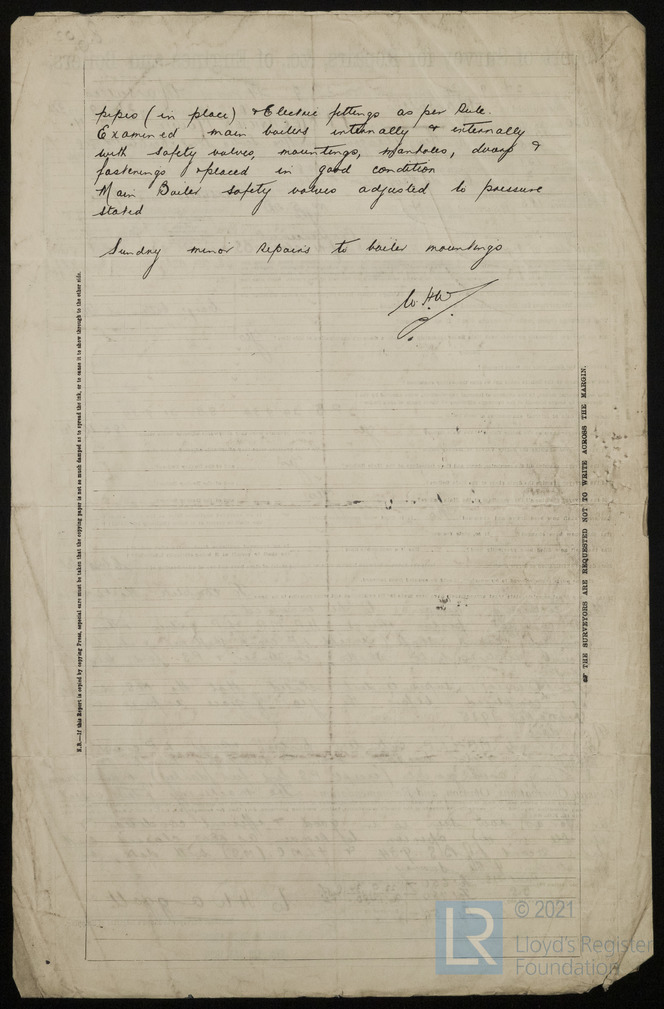 pipes (in place) & Electric fittings as per Rule.
Examined main boilers internally & externally
with safety valves, mountings, manholes, doors &
fastenings & placed in good condition
Main Boiler safety valves adjusted to pressure
stated
Sundry minor repairs to boiler mountings
W.H.W.
N.B.—If this Report is copied by copying Press, especial care must be taken that the copying paper is not so much damped as to spread the ink, or to cause it to show through to the other side.
THE SURVEYORS ARE REQUESTED NOT TO WRITE ACROSS THE MARGIN.
LR
© 2021
Lloyd's Register
Foundation